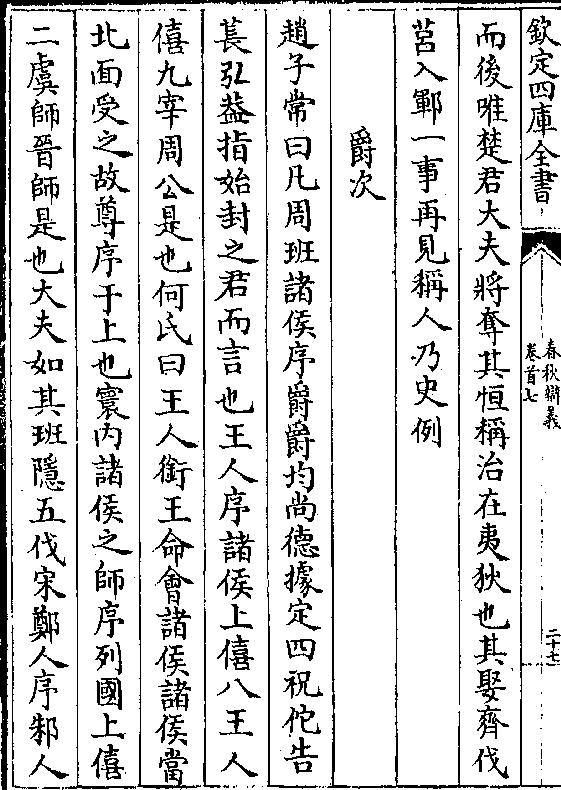 欽定四庫全書
春秋辯義
卷首七
二十七
而後唯楚君大夫將奪其恒稱治在夷狄也其娶齊伐
莒入鄆一事再見稱人乃史例
爵次
趙子常曰凡周班諸侯序爵爵均尚德據定四祝佗告
萇弘葢指始封之君而言也王人序諸侯上僖八王人
僖九宰周公是也何氏曰王人銜王命會諸侯諸侯當
北面受之故尊序于上也寰内諸侯之師序列國上僖
二虞師晉師是也大夫如其班隱五伐宋鄭人序邾人